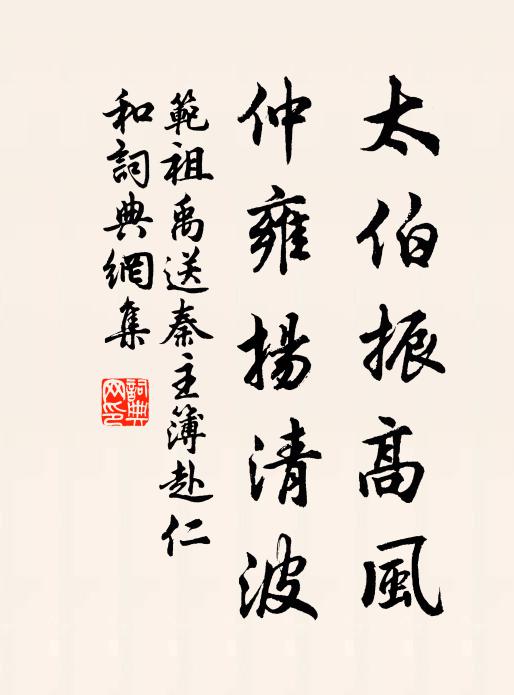 太伯振高風
仲雍揚清波
範祖禹送秦主簿赴仁
和詞典網集
詞典網印